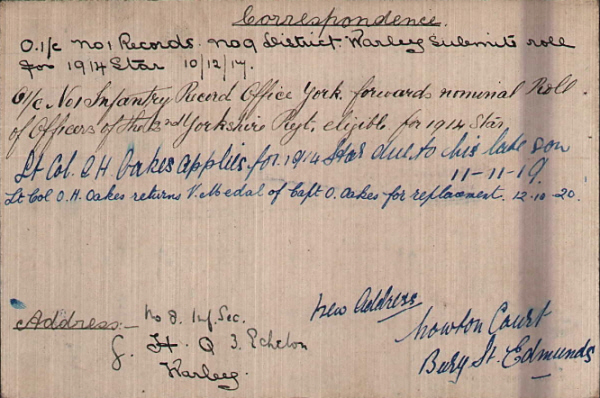 Correspondence.
O.i/c No1 Records. No9 District Warley Submits roll
for 1914 Star 10/12/17.
O/c No1 Infantry Record Office York. forwards nominal Roll
of Officers of the 2nd Yorkshire Regt, eligible for 1914 Star
Lt Col. O H Oakes applies for 1914 Star due to his late son
11-11-19.
Lt Col O.H. Oakes returns V. Medal of Capt O. Oakes for replacement. 12-10-20.
Address:- No 8. Inf. Sec.
G. H. Q 3. Echelon
Warley.
New Address
Nowton Court
Bury St. Edmunds